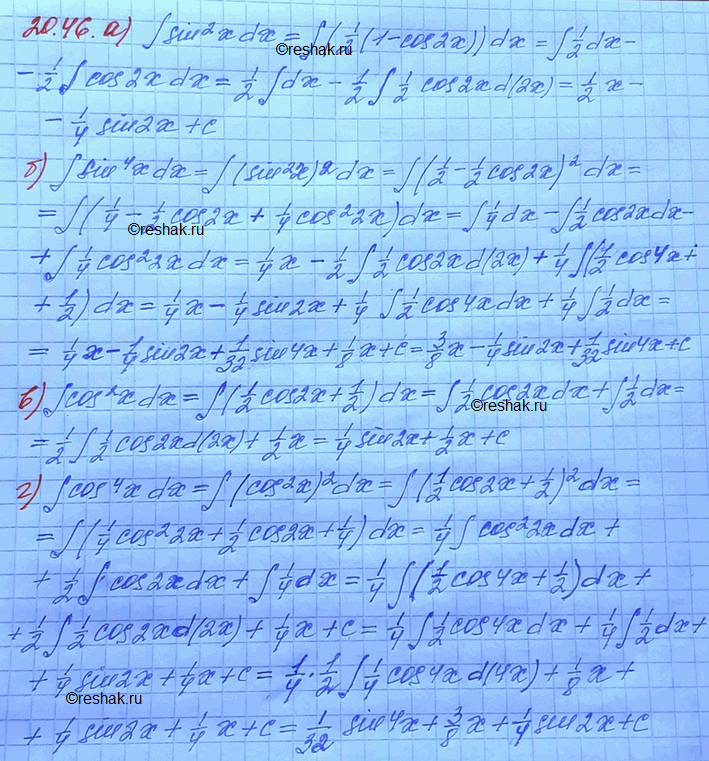 20.46. а) ∫sin²x dx = ∫(½(1-cos2x)) dx = ∫½dx -
- ½∫cos2x dx = ½∫dx - ½∫½cos2x d(2x) = ½x -
- ¼ sin2x + c
б) ∫sin⁴x dx = ∫(sin²x)² dx = ∫(½ - ½cos2x)² dx =
= ∫(¼ - ½cos2x + ¼cos²2x) dx = ∫¼dx - ∫½cos2x dx -
reshak.ru
+ ∫¼cos²2x dx = ¼x - ½∫½cos2x d(2x) + ¼∫(½cos4x +
+ ½) dx = ¼x - ¼sin2x + ¼∫½cos4x dx + ¼∫½dx =
= ¼x - ¼sin2x + 1/32 sin4x + ⅛x + c = ⅜x - ¼sin2x + 1/32 sin4x + c
в) ∫cos²x dx = ∫(½cos2x + ½) dx = ∫½cos2x dx + ∫½dx =
reshak.ru
= ½∫½cos2x d(2x) + ½x = ¼sin2x + ½x + c
г) ∫cos⁴x dx = ∫(cos²x)² dx = ∫(½cos2x + ½)² dx =
= ∫(¼cos²2x + ½cos2x + ¼) dx = ¼∫cos²2x dx +
+ ½∫cos2x dx + ∫¼dx = ¼∫(½cos4x + ½) dx +
+ ½∫½cos2x d(2x) + ¼x + c = ¼∫½cos4x dx + ¼∫½dx +
+ ¼sin2x + ¼x + c = ¼·½∫¼cos4x d(4x) + ⅛x +
reshak.ru
+ ¼sin2x + ¼x + c = 1/32 sin4x + ⅜x + ¼sin2x + c